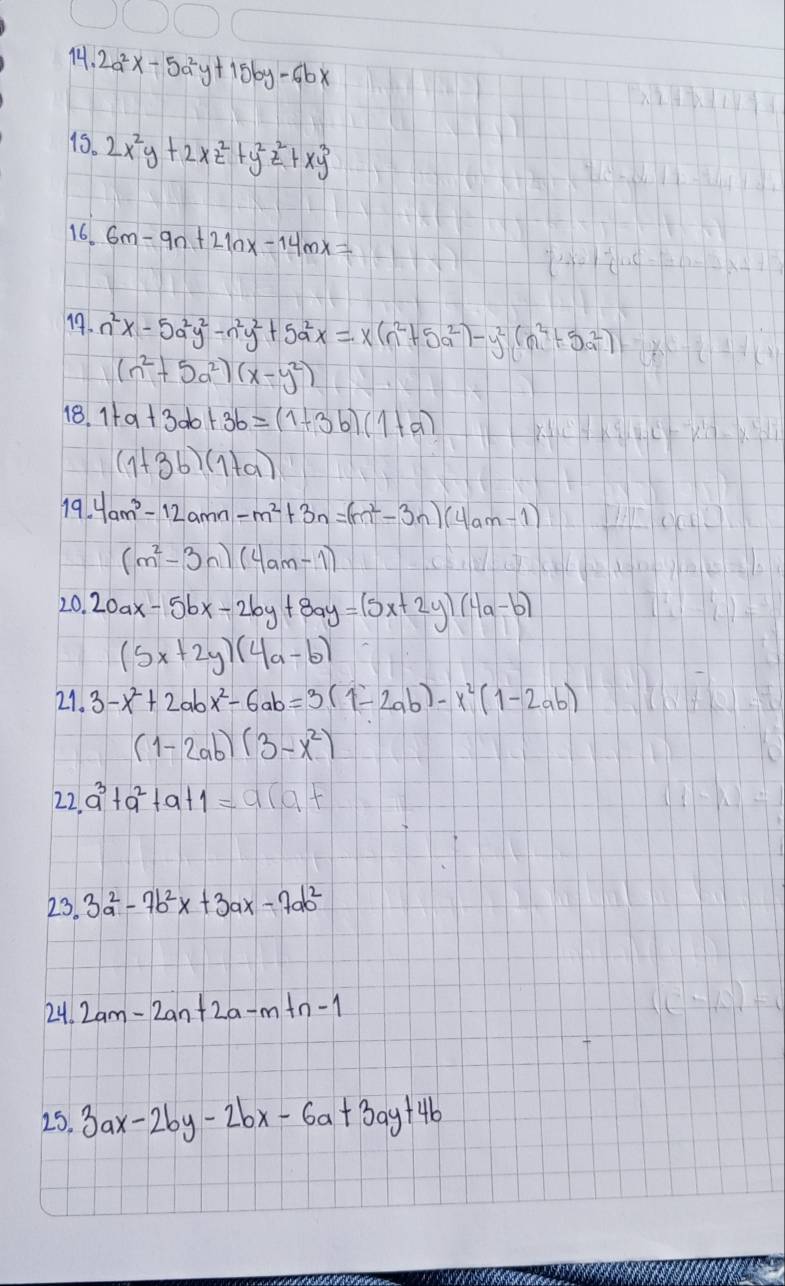 14. 2a²x - 5a²y + 15by - 6bx
15. 2x²y + 2xz² + y²z² + xy³
16. 6m - 9n + 21nx - 14mx =
17. n²x - 5a²y² - n²y² + 5a²x = x(n² + 5a²) - y²(n² + 5a²)
(n² + 5a²)(x - y²)
18. 1 + a + 3ab + 3b = (1 + 3b)(1 + a)
(1 + 3b)(1 + a)
19. 4am³ - 12amn - m² + 3n = (m² - 3n)(4am - 1)
(m² - 3n)(4am - 1)
20. 20ax - 5bx - 2by + 8ay = (5x + 2y)(4a - b)
(5x + 2y)(4a - b)
21. 3 - x² + 2abx² - 6ab = 3(1 - 2ab) - x²(1 - 2ab)
(1 - 2ab)(3 - x²)
22. a³ + a² + a + 1 = a(a +
23. 3a² - 7b²x + 3ax - 7ab²
24. 2am - 2an + 2a - m + n - 1
25. 3ax - 2by - 2bx - 6a + 3ay + 4b